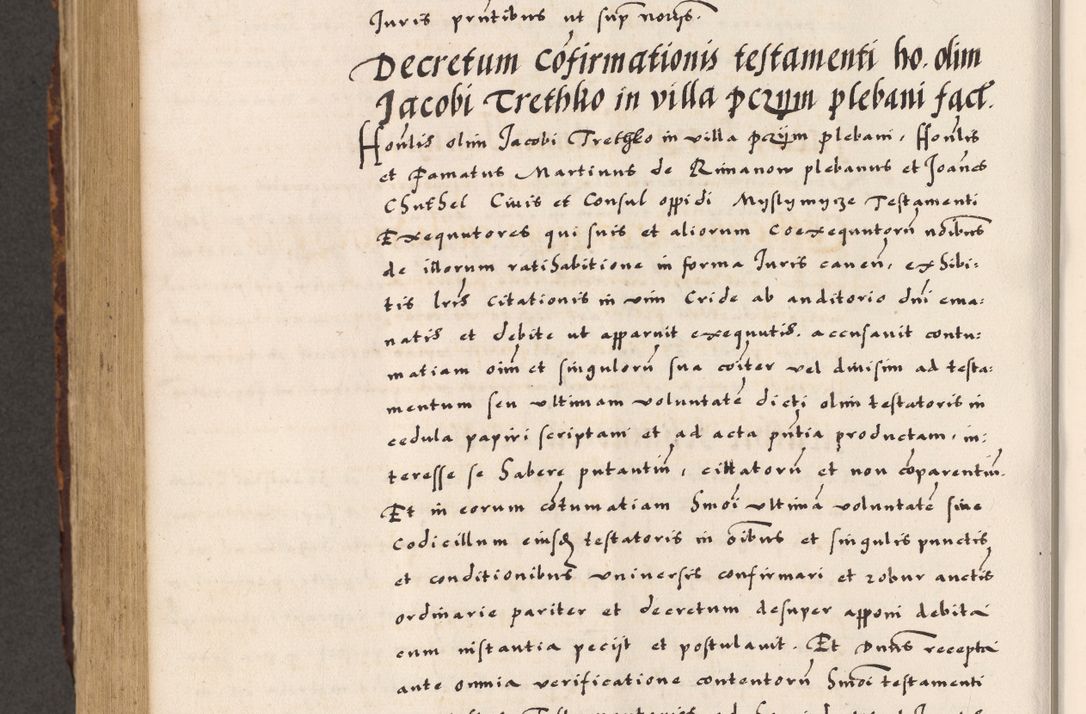 Iuris prñtibus ut sup̃ noris̃.
Decretum Cõfirmationis testamenti ho. olim
Jacobi Trethko in villa pcżym plebani fact.
Hoñlis olim Jacobi Trethko in villa pcżÿm plebani, Hoñlis
et Famatus Martinus de Rimanow plebanus et Joañes
Chuthel Civis et Consul oppidi Myslymycze Testamenti
Exequutores qui suis et aliorum Coexequutorũ nõibus
de illorum ratihabitione in forma Iuris caven̄, exhibi:
tis lrĩs Citationis in vim Cride ab auditorio dñi ema:
natis et debite ut apparuit exequutis. accusavit contu:
matiam oim̃ et singulorũ sua cõiter vel divisim ad testa:
mentum seu ultimam voluntatẽ dicti olim testatoris in
cedula papiri scriptam et ad acta pñtia productam, in:
teresse se habere putantiũ, citatorũ et non cõparentiũ.
Et in eorum cõtumatiam Smõi ultimã voluntatẽ sive
Codicillum eiusdẽ testatoris in oĩbus et singulis punctis
et conditionibus universis confirmari et robur auctis
ordinarie pariter et decretum desuper apponi debita
cum instantia pecijt et postulavit. Et Dnũs recepta
ante omnia verificatione contentorũ Smõi testamenti